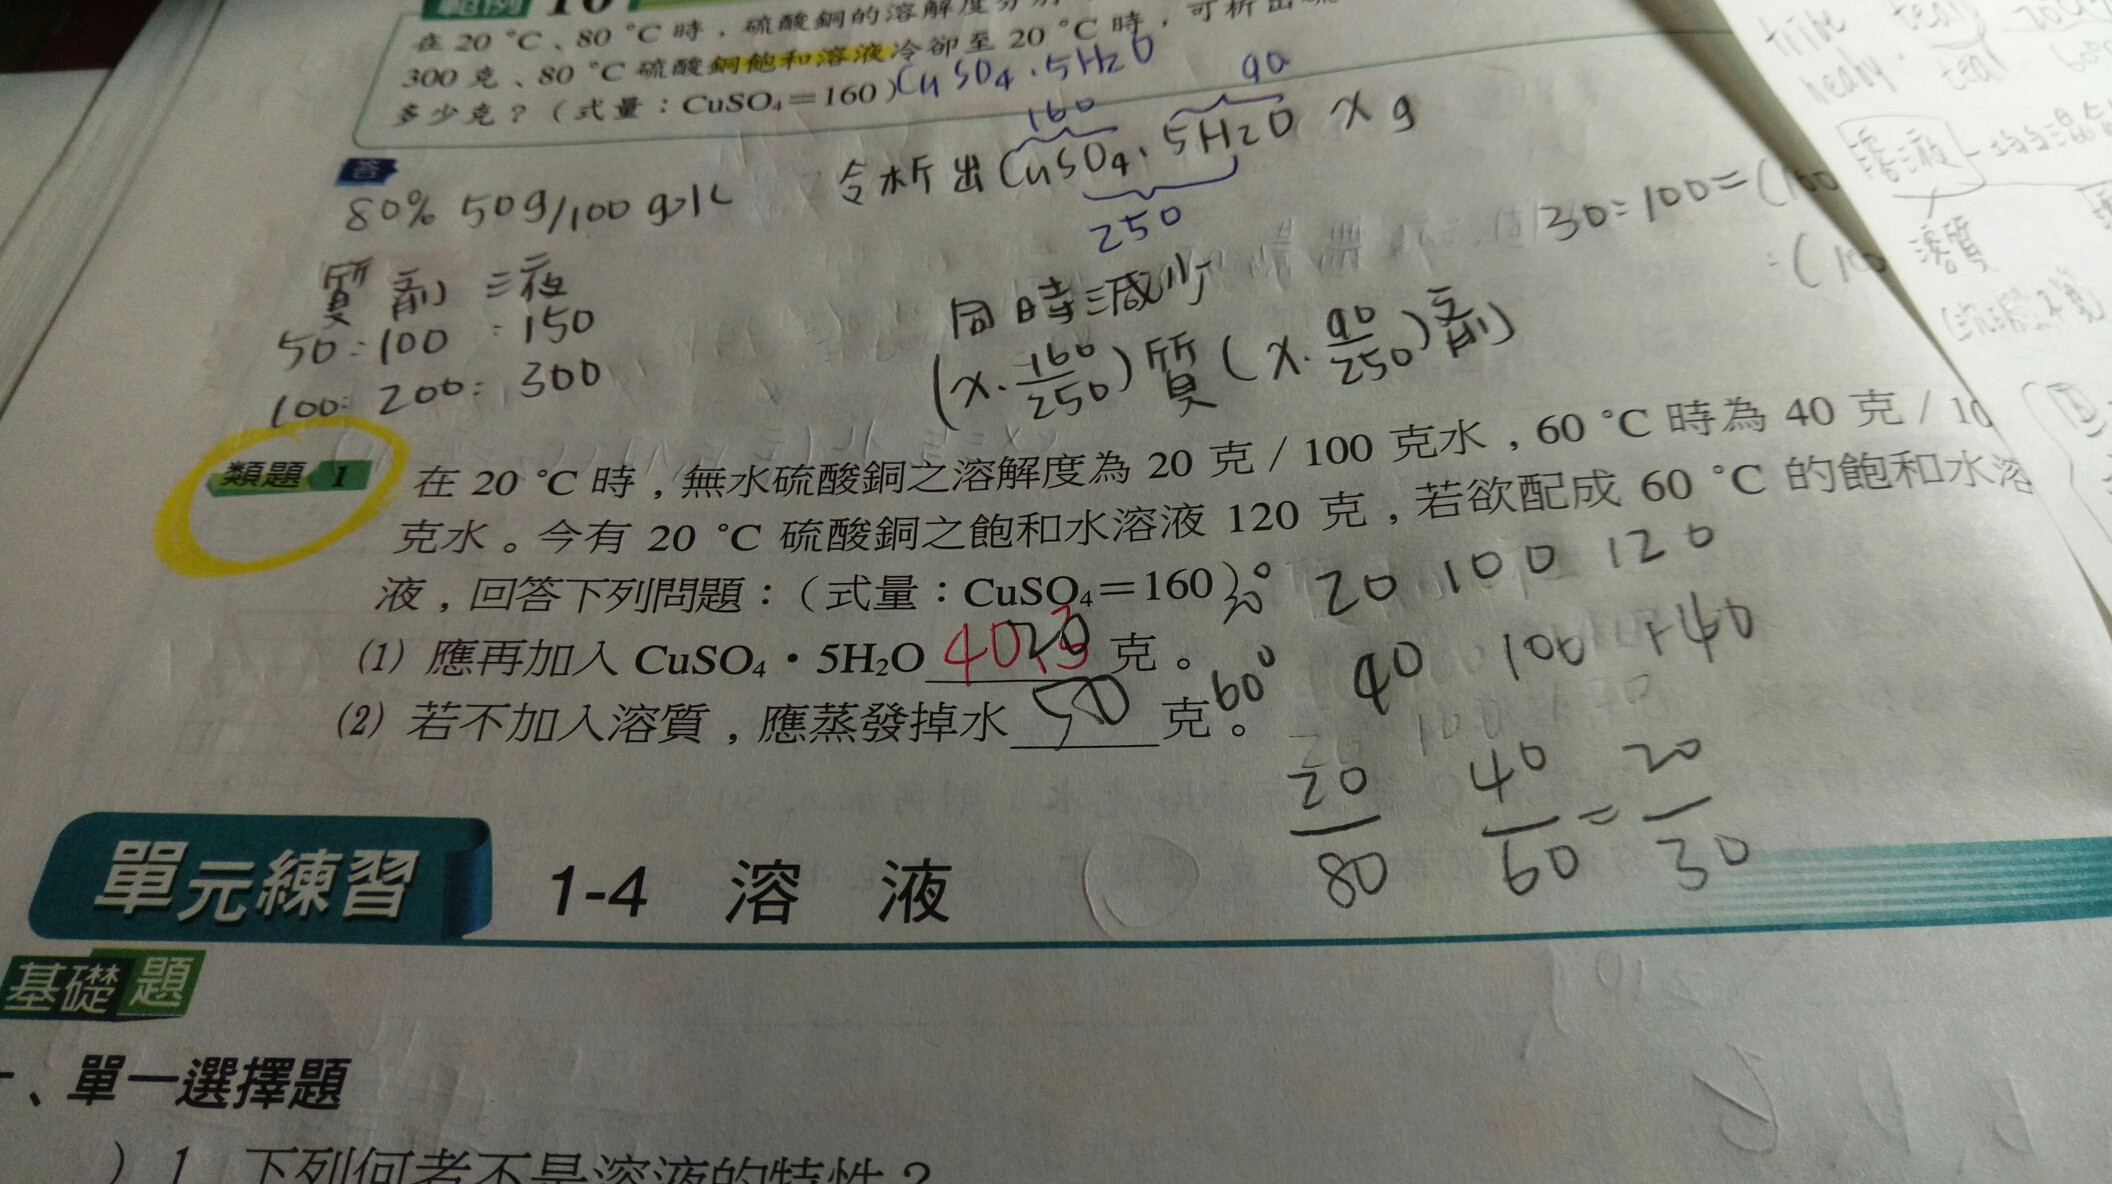 範例 10
在 20 °C、80 °C 時，硫酸銅的溶解度分別
300 克、80 °C 硫酸銅飽和溶液冷卻至 20 °C 時，可析出硫
多少克？（式量：CuSO₄＝160）CuSO4·5H2O
答
160 90
80% 50g/100g水 令析出CuSO4·5H2O x g
250
30:100=(100
:(100
質 剂 液
50:100:150
100:200:300
同時減少
(x·160/250)質(x·90/250)剂
類題 1 在 20 °C 時，無水硫酸銅之溶解度為 20 克 / 100 克水，60 °C 時為 40 克 / 10
克水。今有 20 °C 硫酸銅之飽和水溶液 120 克，若欲配成 60 °C 的飽和水溶
液，回答下列問題：（式量：CuSO₄＝160）
20° 20 100 120
(1) 應再加入 CuSO₄・5H₂O 40.3 20 克。
60° 40 100 140
(2) 若不加入溶質，應蒸發掉水 50 克。
20/80 40/60 = 20/30
單元練習 1-4 溶 液
基礎題
一、單一選擇題
) 1 下列何者不是溶液的特性？
tribe
tear
溶液
溶質